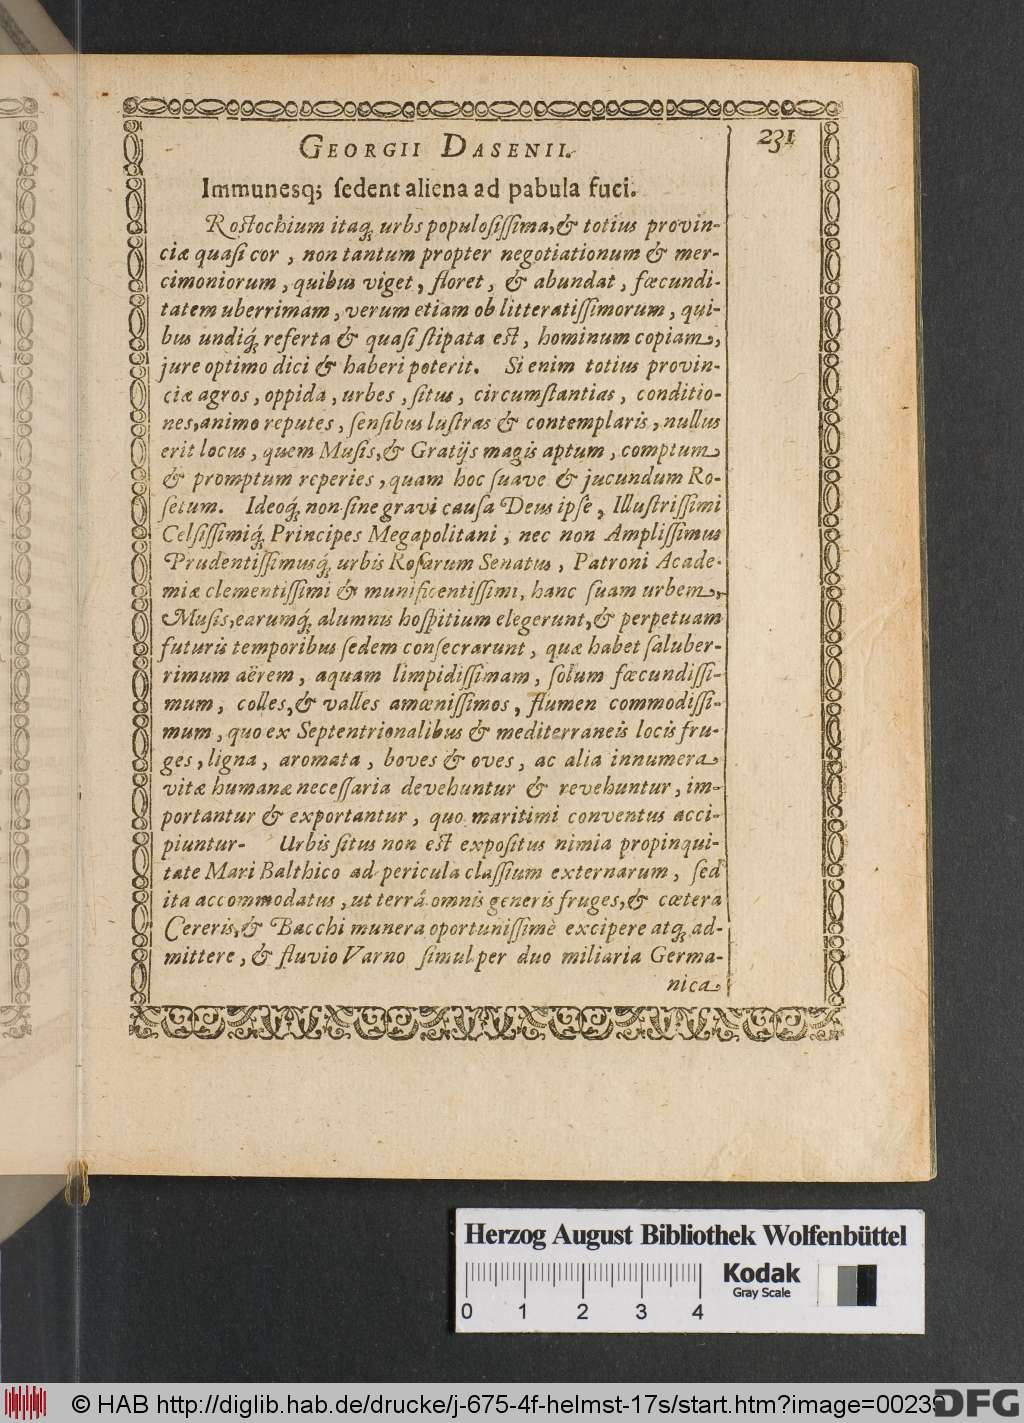 GEORGII DASENII.
231
Immunesq; sedent aliena ad pabula fuci.
Rostochium itaq; urbs populosissima, & totius provin-
ciæ quasi cor, non tantum propter negotiationum & mer-
cimoniorum, quibus viget, floret, & abundat, fœcundi-
tatem uberrimam, verum etiam ob litteratissimorum, qui-
bus undiq; referta & quasi stipata est, hominum copiam,
jure optimo dici & haberi poterit. Si enim totius provin-
ciæ agros, oppida, urbes, situs, circumstantias, conditio-
nes, animo reputes, sensibus lustras & contemplaris, nullus
erit locus, quem Musis, & Gratijs magis aptum, comptum
& promptum reperies, quam hoc suave & jucundum Ro-
setum. Ideoq; non sine gravi causa Deus ipse, Illustrissimi
Celsissimiq; Principes Megapolitani, nec non Amplissimus
Prudentissimusq; urbis Rosarum Senatus, Patroni Acade-
miæ clementissimi & munificentissimi, hanc suam urbem,
Musis, earumq; alumnis hospitium elegerunt, & perpetuam
futuris temporibus sedem consecrarunt, quæ habet saluber-
rimum aërem, aquam limpidissimam, solum fœcundissi-
mum, colles, & valles amœnissimos, flumen commodissi-
mum, quo ex Septentrionalibus & mediterraneis locis fru-
ges, ligna, aromata, boves & oves, ac alia innumera
vitæ humanæ necessaria devehuntur & revehuntur, im-
portantur & exportantur, quo maritimi conventus acci-
piuntur. Urbis situs non est expositus nimia propinqui-
tate Mari Balthico ad pericula classium externarum, sed
ita accommodatus, ut terrâ omnis generis fruges, & cœtera
Cereris, & Bacchi munera oportunissimè excipere atq; ad-
mittere, & fluvio Varno simul per duo miliaria Germa-
nica
Herzog August Bibliothek Wolfenbüttel
Kodak
Gray Scale
0 1 2 3 4
© HAB http://diglib.hab.de/drucke/j-675-4f-helmst-17s/start.htm?image=00239
DFG